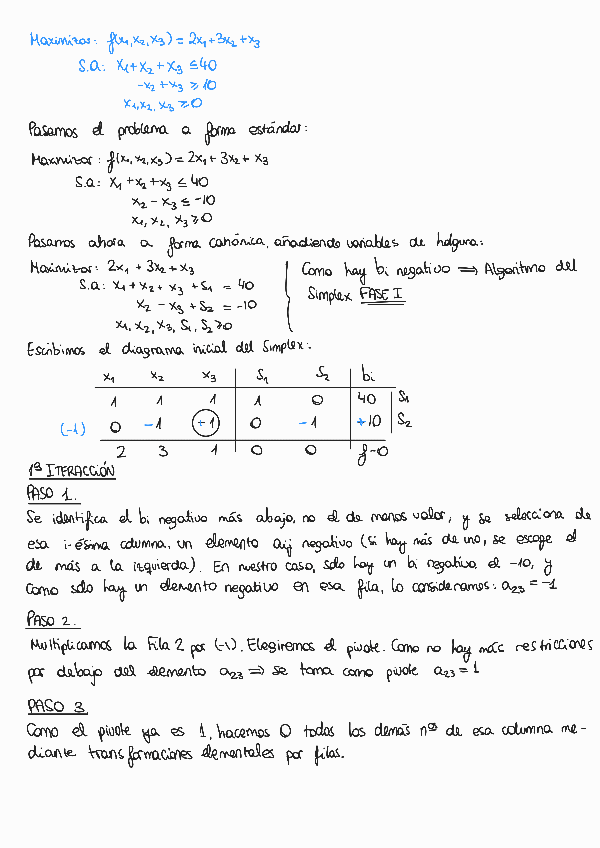 Maximizar: f(x₁, x₂, x₃) = 2x₁+3x₂+x₃
S.a: x₁+x₂+x₃ ≤40
-x₂+x₃ ≥10
x₁, x₂, x₃ ≥0
Pasamos el problema a forma estándar:
Maximizar: f(x₁, x₂, x₃) = 2x₁+3x₂+x₃
S.a: x₁+x₂+x₃ ≤ 40
x₂-x₃ ≤ -10
x₁, x₂, x₃ ≥0
Pasamos ahora a forma canónica, añadiendo variables de holgura:
Maximizar: 2x₁+3x₂+x₃
S.a: x₁+x₂+x₃+S₁ = 40
x₂-x₃+S₂ = -10
x₁, x₂, x₃, S₁, S₂ ≥0
Como hay bi negativo ⟹ Algoritmo del
Simplex FASE I
Escribimos el diagrama inicial del Simplex:
x₁ x₂ x₃ S₁ S₂ bi
1 1 1 1 0 40 S₁
(-1) 0 -1 +1 0 -1 +10 S₂
2 3 1 0 0 f-0
1ª ITERACCIÓN
PASO 1.
Se identifica el bi negativo más abajo, no el de menos valor, y se selecciona de
esa i-ésima columna, un elemento aij negativo (si hay más de uno, se escoge el
de más a la izquierda). En nuestro caso, sólo hay un bi negativo, el -10, y
como sólo hay un elemento negativo en esa fila, lo consideramos: a₂₃ = -1
PASO 2.
Multiplicamos la Fila 2 por (-1). Elegiremos el pivote. Como no hay más restricciones
por debajo del elemento a₂₃ ⟹ se toma como pivote a₂₃ = 1
PASO 3
Como el pivote ya es 1, hacemos 0 todos los demás nºs de esa columna me-
diante transformaciones elementales por filas.